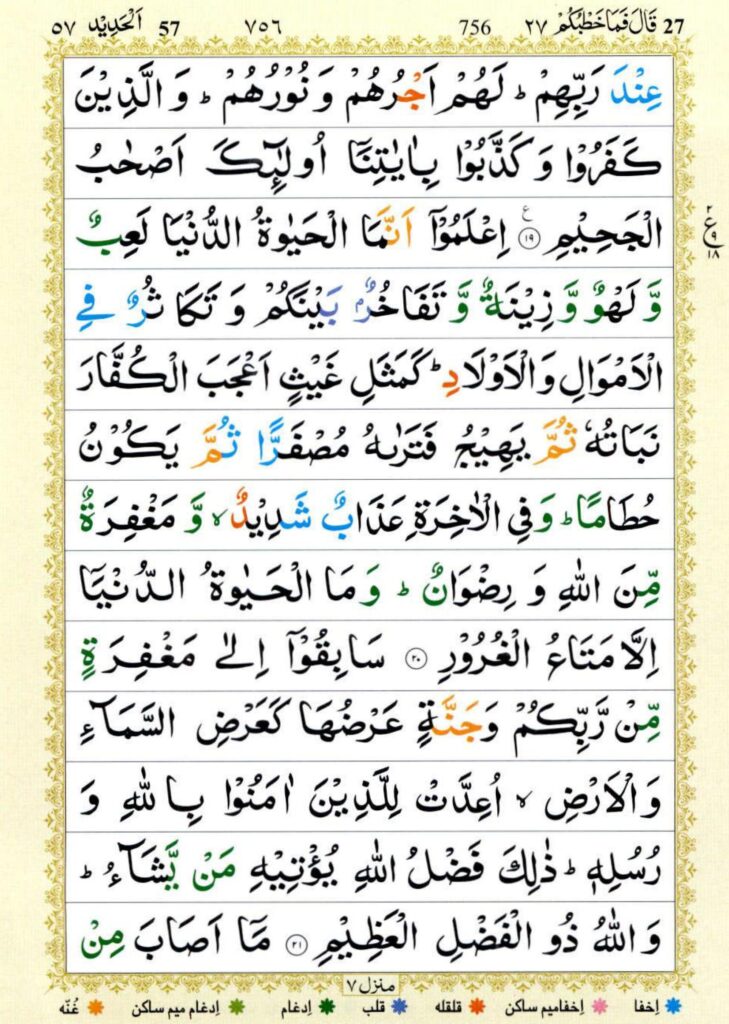 27 قَالَ فَمَا خَطْبُكُمْ ٢٧ 756 ٧٥٦ 57 اَلْحَدِيْد ٥٧
عِنْدَ رَبِّهِمْ ؕ لَهُمْ اَجْرُهُمْ وَ نُوْرُهُمْ ؕ وَ الَّذِيْنَ
كَفَرُوْا وَ كَذَّبُوْا بِاٰيٰتِنَاۤ اُولٰٓئِكَ اَصْحٰبُ
الْجَحِيْمِ ﴿۱۹﴾ ع اِعْلَمُوْۤا اَنَّمَا الْحَيٰوةُ الدُّنْيَا لَعِبٌ
٢ ع ٩ ١٨
وَّ لَهْوٌ وَّ زِيْنَةٌ وَّ تَفَاخُرٌۢ بَيْنَكُمْ وَ تَكَاثُرٌ فِي
الْاَمْوَالِ وَ الْاَوْلَادِ ؕ كَمَثَلِ غَيْثٍ اَعْجَبَ الْكُفَّارَ
نَبَاتُهٗ ثُمَّ يَهِيْجُ فَتَرٰىهُ مُصْفَرًّا ثُمَّ يَكُوْنُ
حُطَامًا ؕ وَ فِي الْاٰخِرَةِ عَذَابٌ شَدِيْدٌ ۙ وَّ مَغْفِرَةٌ
مِّنَ اللّٰهِ وَ رِضْوَانٌ ؕ وَ مَا الْحَيٰوةُ الدُّنْيَاۤ
اِلَّا مَتَاعُ الْغُرُوْرِ ﴿۲۰﴾ سَابِقُوْۤا اِلٰى مَغْفِرَةٍ
مِّنْ رَّبِّكُمْ وَ جَنَّةٍ عَرْضُهَا كَعَرْضِ السَّمَآءِ
وَ الْاَرْضِ ۙ اُعِدَّتْ لِلَّذِيْنَ اٰمَنُوْا بِاللّٰهِ وَ
رُسُلِهٖ ؕ ذٰلِكَ فَضْلُ اللّٰهِ يُؤْتِيْهِ مَنْ يَّشَآءُ ؕ
وَ اللّٰهُ ذُو الْفَضْلِ الْعَظِيْمِ ﴿۲۱﴾ مَاۤ اَصَابَ مِنْ
منزل ٧
اِخفا اِخفامیم ساکن قلقله قلب اِدغام اِدغام میم ساکن غُنّه